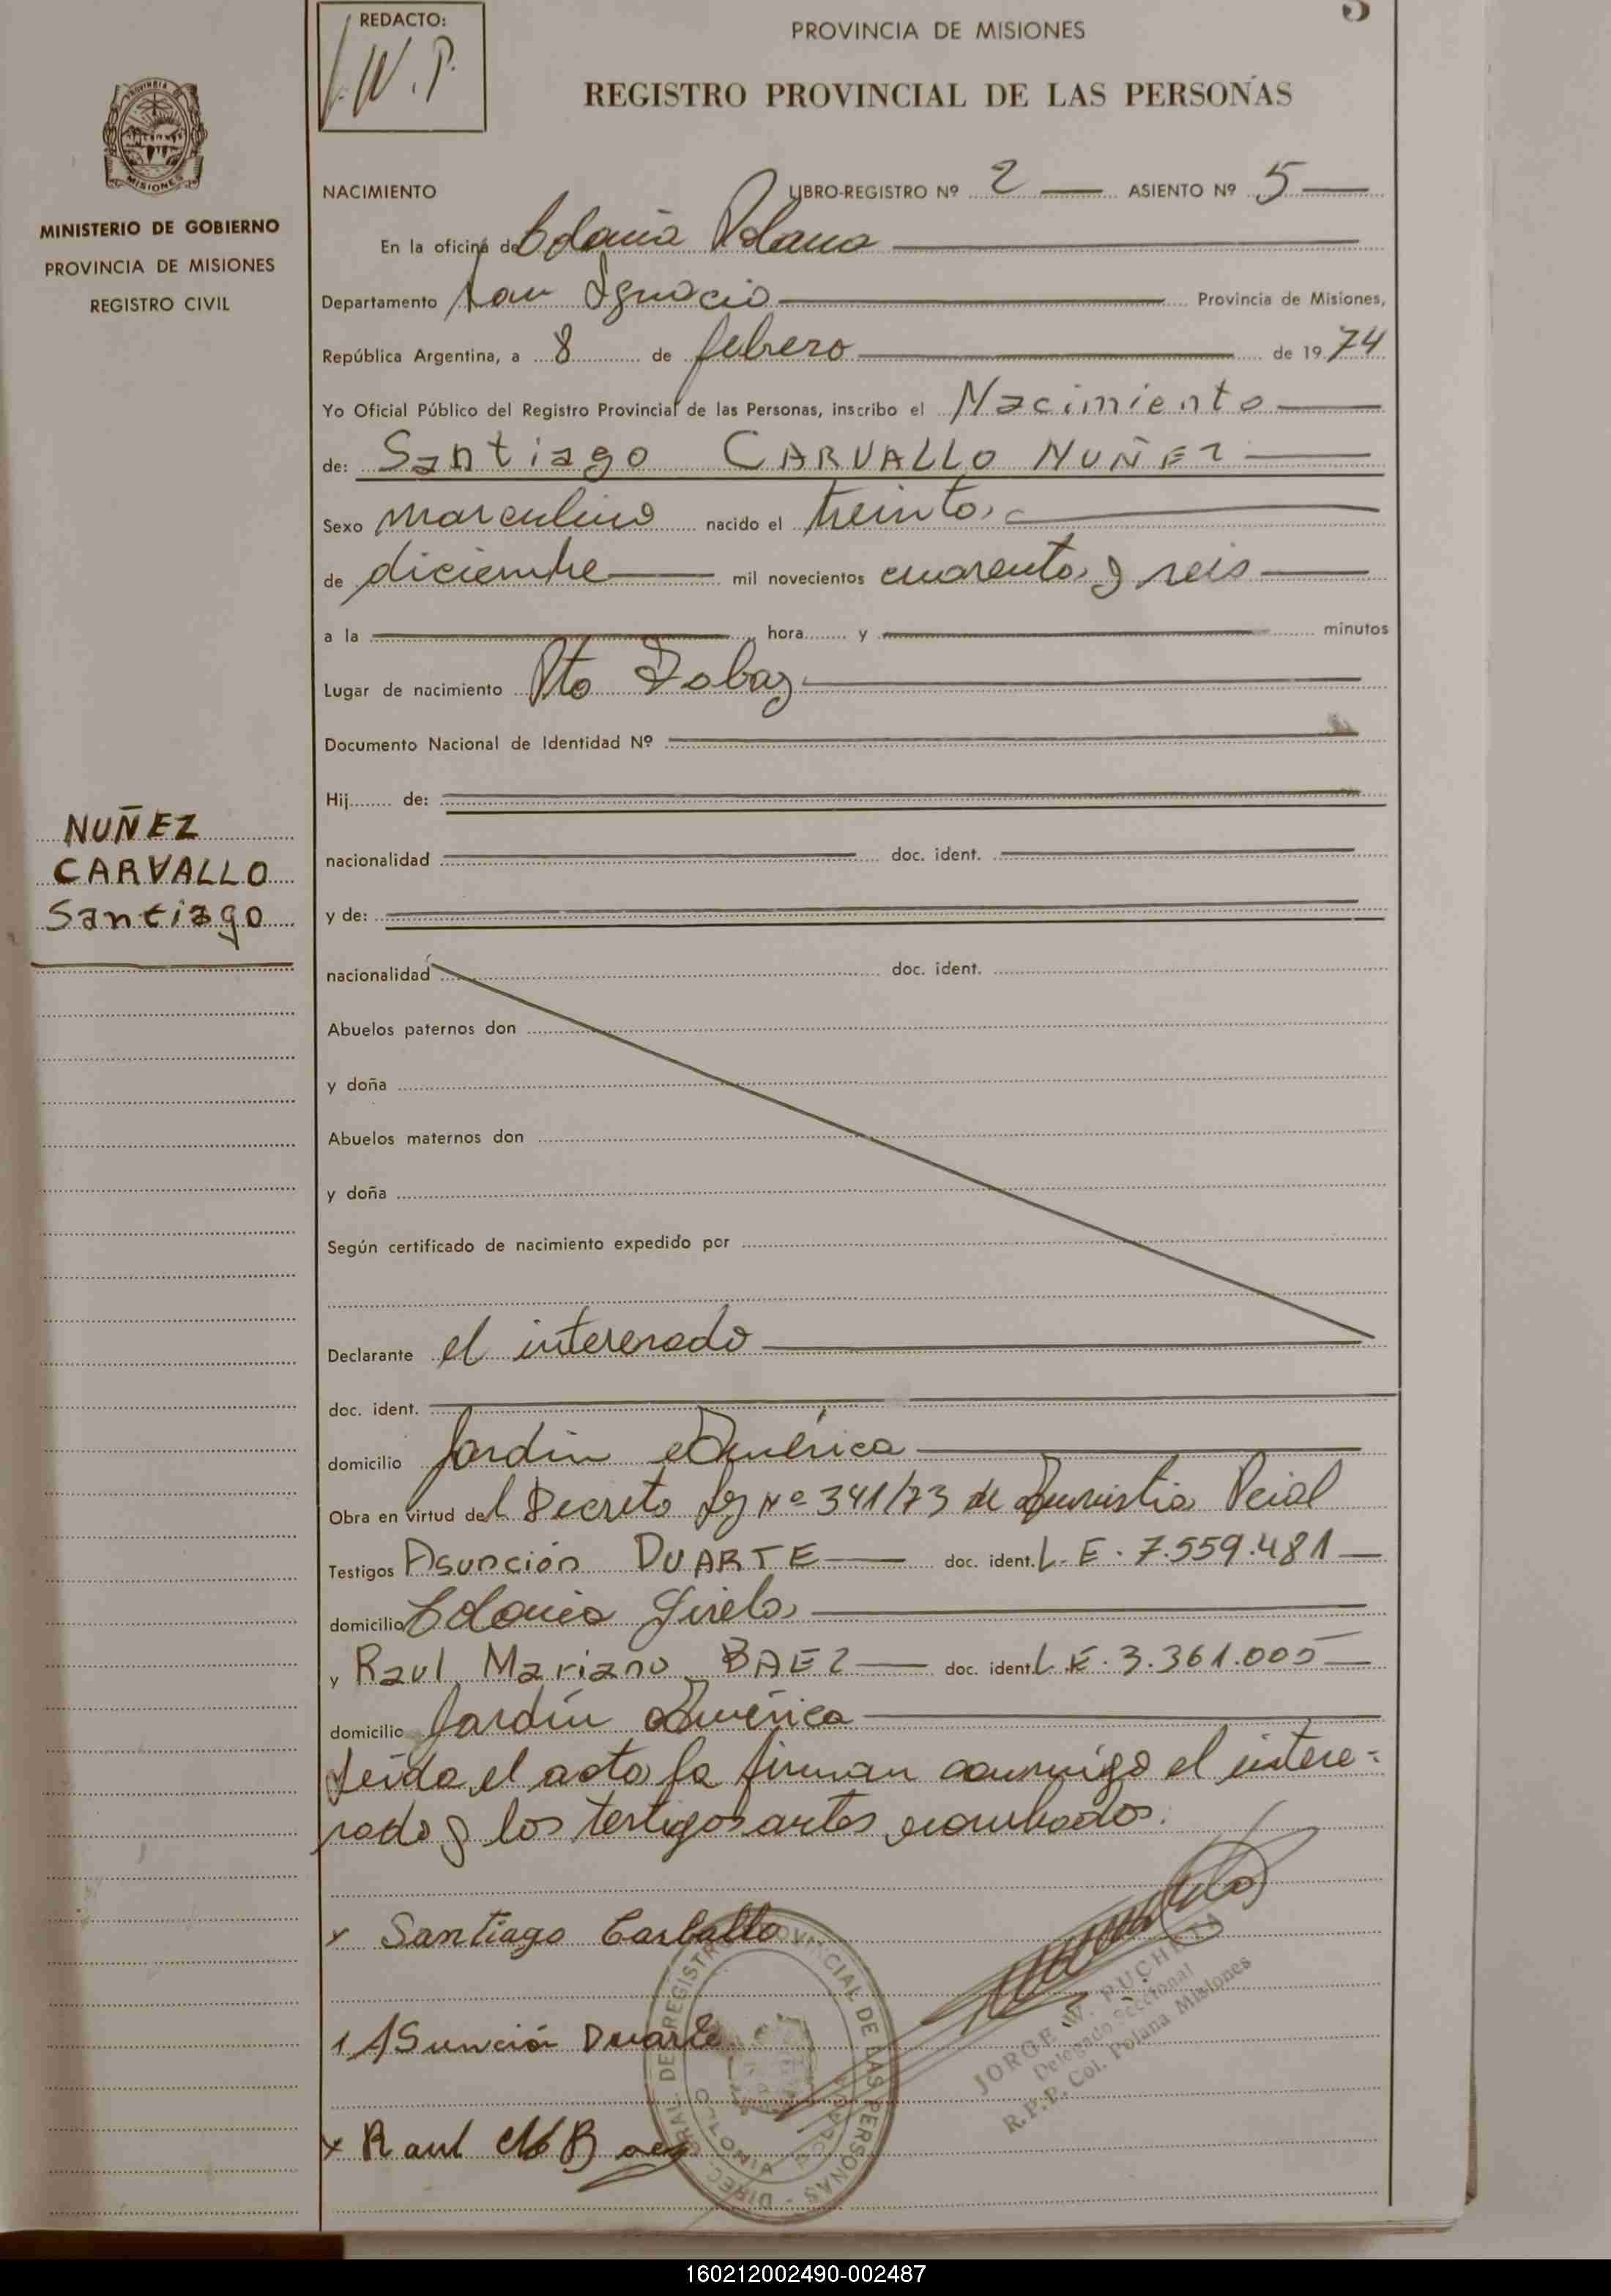 REDACTO:
J.W.P.
PROVINCIA DE MISIONES
5
REGISTRO PROVINCIAL DE LAS PERSONAS
MISIONES
MINISTERIO DE GOBIERNO
PROVINCIA DE MISIONES
REGISTRO CIVIL
NACIMIENTO LIBRO-REGISTRO Nº 2 ASIENTO Nº 5
En la oficina de Colonia Polana
Departamento San Ignacio Provincia de Misiones,
República Argentina, a 8 de febrero de 1974
Yo Oficial Público del Registro Provincial de las Personas, inscribo el Nacimiento
de: Santiago CARVALLO NUÑEZ
Sexo masculino nacido el treinta
de diciembre mil novecientos cuarenta y seis
a la hora y minutos
Lugar de nacimiento Pto
Documento Nacional de Identidad Nº
Hij de:
nacionalidad doc. ident.
y de:
NUÑEZ
CARVALLO
Santiago
nacionalidad doc. ident.
Abuelos paternos don
y doña
Abuelos maternos don
y doña
Según certificado de nacimiento expedido por
Declarante el interesado
doc. ident.
domicilio Jardín América
Obra en virtud del Decreto Ley Nº 341/73 de Amnistia Pcial
Testigos Asunción DUARTE doc. ident. L.E. 7.559.481
domicilio Colonia
y Raul Mariano BAEZ doc. ident. L.E. 3.361.005
domicilio Jardín América
Leída el acta la firman conmigo el intere-
sado y los testigos antes nombados.
x Santiago Carballo
1 ASunción Duarte
x Raul M Baez
DIREC GRAL DE REGISTRO PROVINCIAL DE LAS PERSONAS
COLONIA POLANA
JORGE W. PUCHETA
Delegado Seccional
R.P.P. Col. Polana Misiones
160212002490-002487